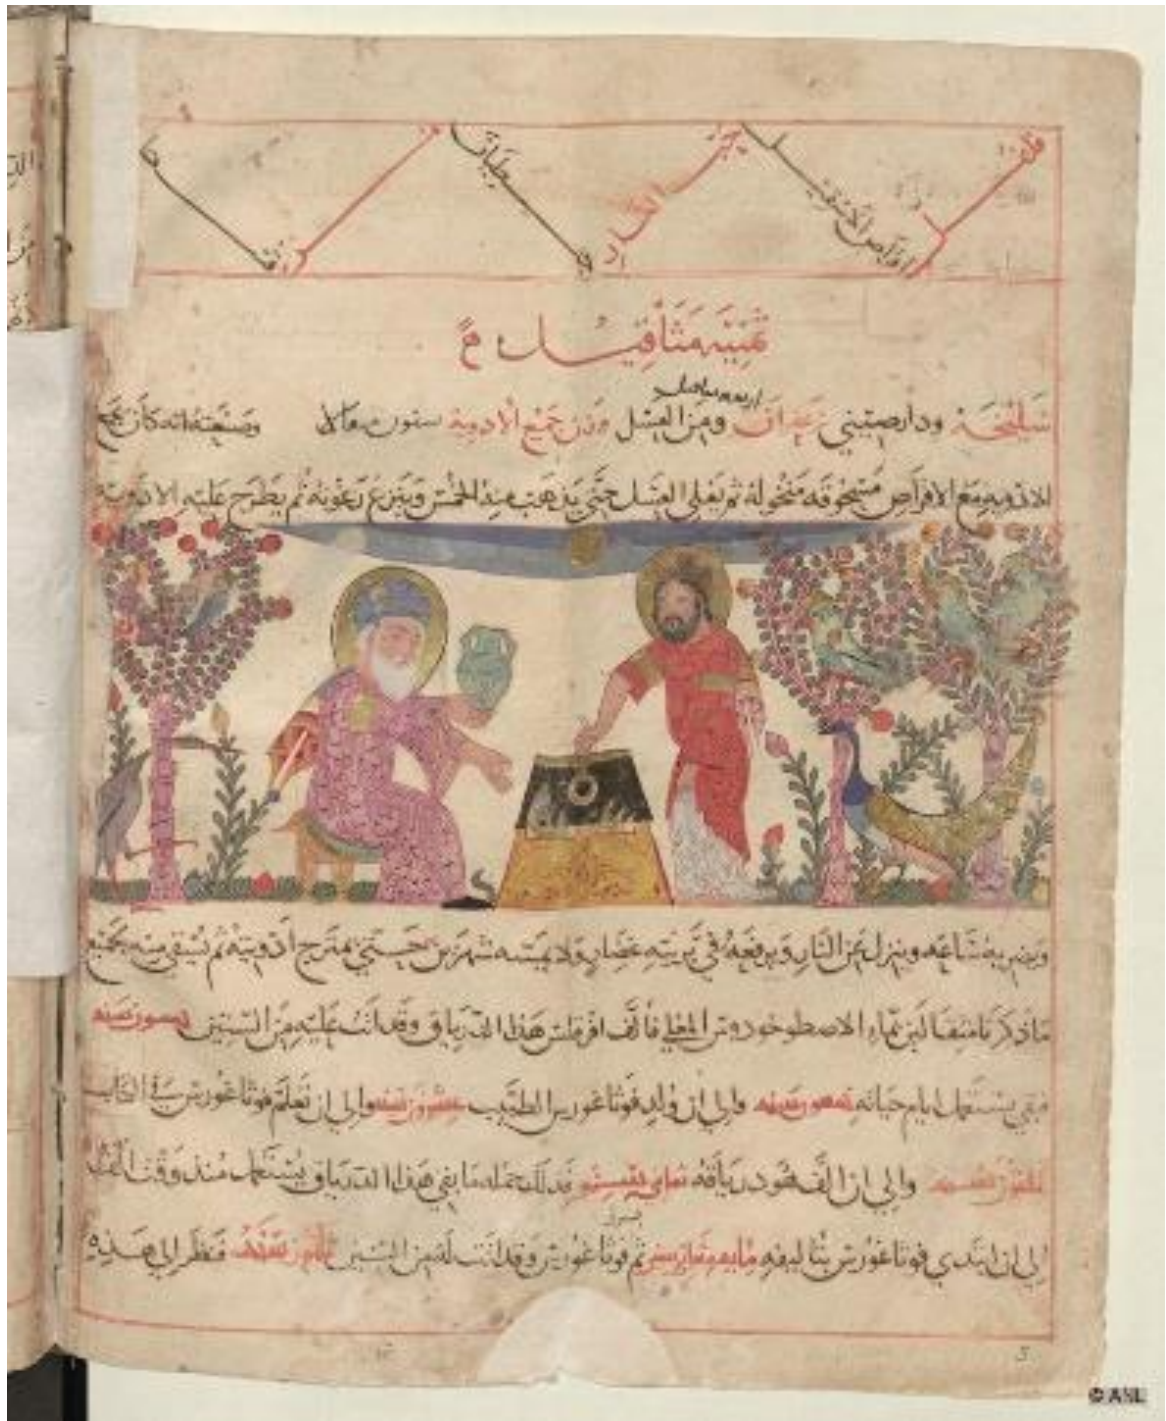 اقراص الاشقيل
حب الغار
ثمنيه مثاقيل
سليخة ودارصيني زعفران ومن العسل وزن جميع الادوية ستون مثقالا وصنعته انه كان يجمع
اربعه مثاقيل
الادويه مع الاقراص مسحوقه منخوله ثم يغلي العسل حتي يذهب منه الخمس وينزع رغوته ثم يطرح عليه الادويه
ويضربه ساعه وينزل عن النار ويرفعه في برنيه غضار ولا يمسه شهرين حتي يمتزج ادويته ثم يسقي منه بجميع
ما ذكرنا منقالين بماء الاصطوخودوس المغلي فالف افرقلس هذا الدرياق وقد اتت عليه من السنين
فبقي يستعمل ايام حياته سنه والي ان ولد فوثاغورس الطبيب عشرون سنه والي ان تعلم فوثاغورس
ثلثون سنه والي ان الف هو درياقه فذلك جمله ما بقي هذا الدرياق يستعمل منذ وقت الف
الي ان ابتدي فوثاغورس بتاليفه مايه ثم فوثاغورس وقد اتت له من السنين ثلثون سنه فنظر الي هذه
© ANL